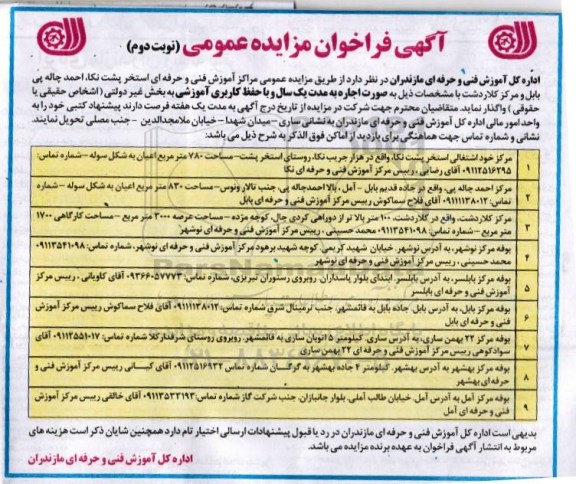 آگهی فراخوان مزایده عمومی (نوبت دوم)
اداره کل آموزش فنی و حرفه ای مازندران در نظر دارد از طریق مزایده عمومی مراکز آموزش فنی و حرفه ای استخر پشت نکا، احمد چاله پی
بابل و مرکز کلاردشت با مشخصات ذیل به صورت اجاره به مدت یک سال و با حفظ کاربری آموزشی به بخش غیر دولتی (اشخاص حقیقی یا
حقوقی) واگذار نماید. متقاضیان محترم جهت شرکت در مزایده از تاریخ درج آگهی به مدت یک هفته فرصت دارند پیشنهاد کتبی خود را به
واحد امور مالی اداره کل آموزش فنی و حرفه ای مازندران به نشانی ساری -میدان شهدا - خیابان ملامجدالدین - جنب مصلی تحویل نمایند.
نشانی و شماره تماس جهت هماهنگی برای بازدید از اماکن فوق الذکر به شرح ذیل می باشد:
۱ مرکز خود اشتغالی استخر پشت نکا، واقع در هزار جریب نکا، روستای استخر پشت-مساحت ۷۸۰ متر مربع اعیان به شکل سوله -شماره تماس:
۰۹۱۱۲۵۱۶۲۹۵ آقای رضایی، رییس مرکز آموزش فنی و حرفه ای نکا
۲ مرکز احمد چاله پی، واقع در جاده قدیم بابل - آمل، بالا احمدچاله پی، جنب تالار ونوس-مساحت ۸۳۰ متر مربع اعیان به شکل سوله -شماره
تماس: ۰۹۱۱۱۱۳۸۰۱۲ آقای فلاح سماکوش رییس مرکز آموزش فنی و حرفه ای بابل
۳ مرکز کلاردشت، واقع در کلاردشت، ۱۰۰ متر بالا تر از دوراهی کردی چال، کوچه مژده -مساحت عرصه ۳۰۰۰ متر مربع -مساحت کارگاهی ۱۷۰۰
متر مربع -شماره تماس: ۰۹۱۱۳۵۴۱۰۹۸ محمد حسینی، رییس مرکز آموزش فنی و حرفه ای نوشهر
۴ بوفه مرکز نوشهر، به آدرس نوشهر، خیابان شهید کریمی، کوچه شهید برهود مرکز آموزش فنی و حرفه ای نوشهر، شماره تماس: ۰۹۱۱۳۵۴۱۰۹۸
محمد حسینی، رییس مرکز آموزش فنی و حرفه ای نوشهر
۵ بوفه مرکز بابلسر، به آدرس بابلسر، ابتدای بلوار پاسداران، روبروی رستوران تبریزی، شماره تماس: ۰۹۳۶۶۰۵۷۷۷۳ آقای کاویانی، رییس مرکز
آموزش فنی و حرفه ای بابلسر
۶ بوفه مرکز بابل، به آدرس بابل، جاده بابل به قائمشهر، جنب ترمینال شرق شماره تماس: ۰۹۱۱۱۱۳۸۰۱۲ آقای فلاح سماکوش رییس مرکز آموزش
فنی و حرفه ای بابل
۷ بوفه مرکز ۲۲ بهمن ساری، به آدرس ساری، کیلومتر ۵ اتوبان ساری به قائمشهر، روبروی روستای شرفدارکلا شماره تماس: ۰۹۱۱۲۵۵۱۰۱۷ آقای
سوادکوهی رییس مرکز آموزش فنی و حرفه ای ۲۲ بهمن ساری
۸ بوفه مرکز بهشهر به آدرس بهشهر، کیلومتر ۴ جاده بهشهر به گرگان، شماره تماس ۰۹۱۱۲۵۱۶۹۳۲ آقای کیسانی رییس مرکز آموزش فنی و
حرفه ای بهشهر
۹ بوفه مرکز آمل به آدرس آمل، خیابان طالب آملی، بلوار جانبازان، جنب شرکت گاز شماره تماس: ۰۹۱۱۳۵۳۳۱۹۳ آقای خالقی رییس مرکز آموزش
فنی و حرفه ای آمل
بدیهی است اداره کل آموزش فنی و حرفه ای مازندران در رد یا قبول پیشنهادات ارسالی اختیار تام دارد همچنین شایان ذکر است هزینه های
مربوط به انتشار آگهی فراخوان به عهده برنده مزایده می باشد.
اداره کل آموزش فنی و حرفه ای مازندران